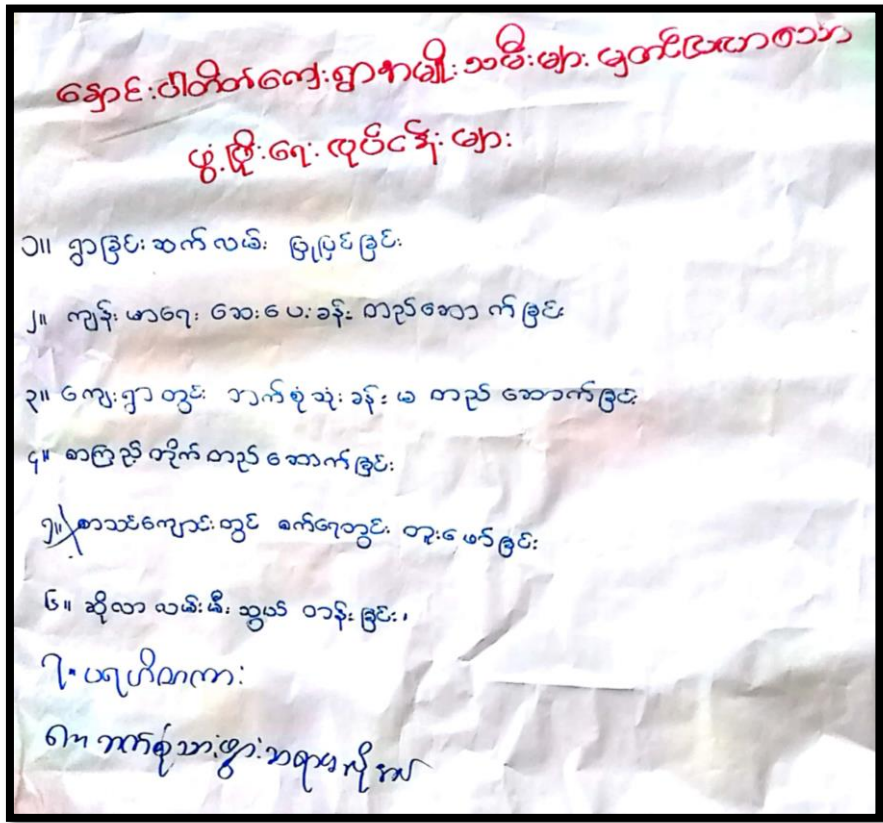 ညောင်းပါတိတ်ကျေးရွာအမျိုးသမီးများ မှတင်ပြလာသော
ဖွံ့ဖြိုးရေးလုပ်ငန်းများ
၁။ ရွာခြင်းဆက်လမ်း ပြုပြင်ခြင်း
၂။ ကျန်းမာရေး ဆေးပေးခန်း တည်ဆောက်ခြင်း
၃။ ကျေးရွာတွင်း ဘက်စုံသုံးခန်းမ တည်ဆောက်ခြင်း
၄။ စာကြည့်တိုက်တည်ဆောက်ခြင်း
၅။ စာသင်ကျောင်းတွင် စက်ရေတွင်း တူးဖော်ခြင်း
၆။ ဆိုလာလမ်းမီး သွယ်တန်းခြင်း၊
၇။ ပရဟိတကား
၈။ ဘက်စုံသားဖွားဆရာမလိုအပ်